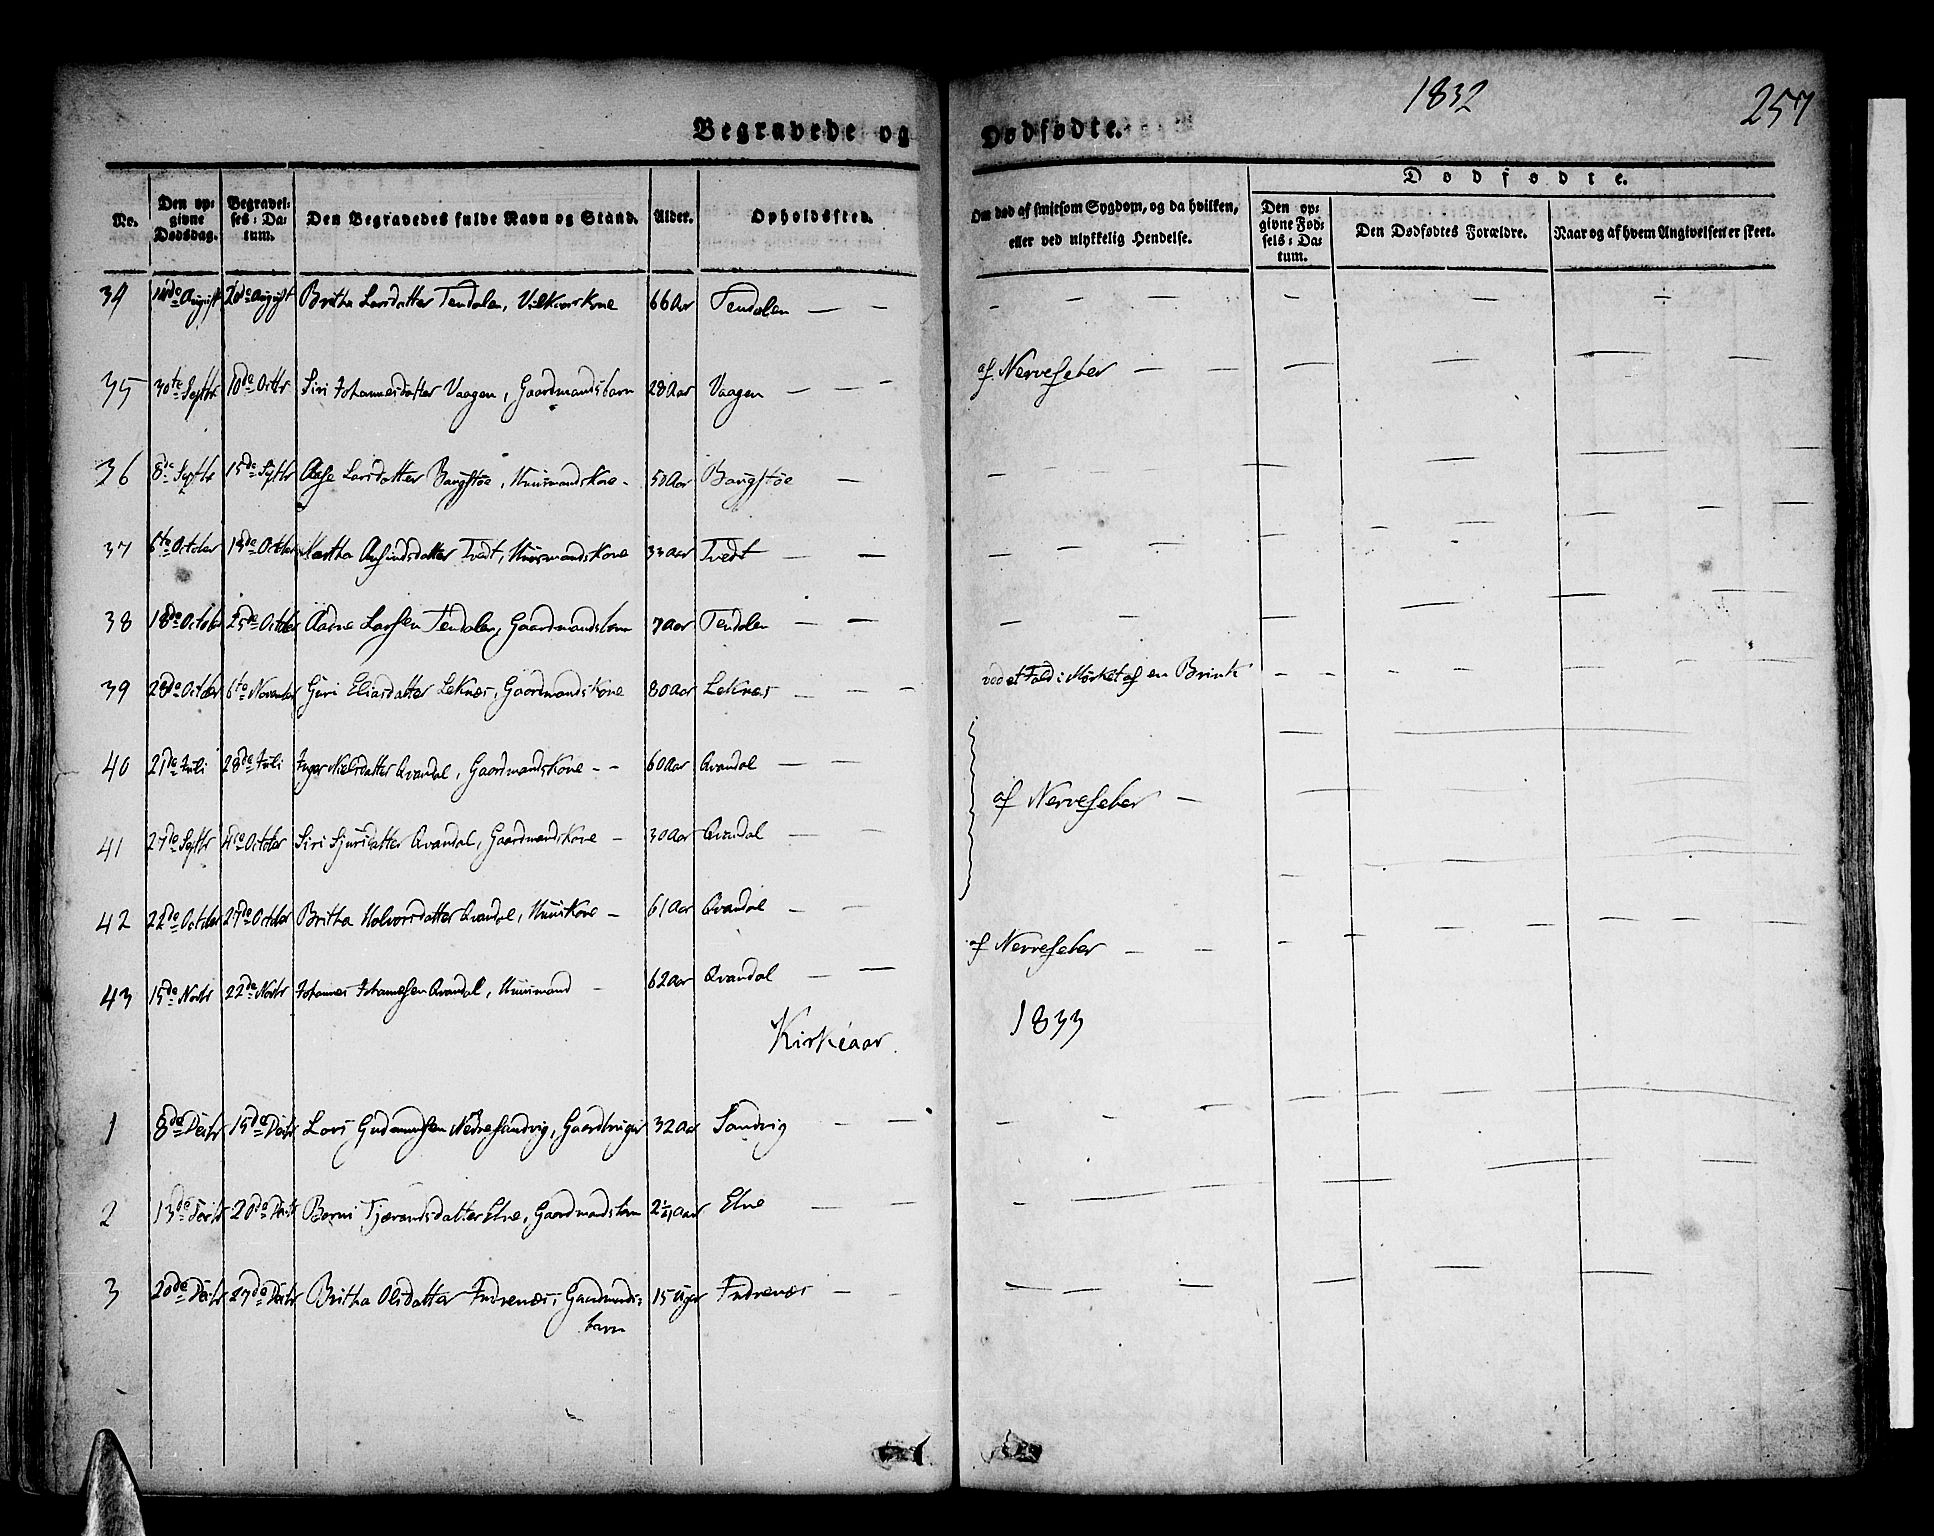 1832
257
Begravede og Dødfødte.
Dødfødte.
No.
Den opgivne Dødsdag.
Begravelses-Datum.
Den Begravedes fulde Navn og Stand.
Alder.
Opholdssted.
Om død af smitsom Sygdom, og da hvilken, eller ved ulykkelig Hendelse.
Den opgivne Fødsels-Datum.
Den Dødfødtes Forældre.
Naar og af hvem Angivelsen er skeet.
34 14de August 20de August Britha Larsdatter Tendalen, Vilkorskone 66 Aar Tendalen — — - — — —
35 30te Septbr 10de Octbr Siri Johannesdatter Vaagen, Gaardmandsbarn 28 Aar Vaagen — — — af Nervefeber — —
36 8de Septbr 15de Septbr Aase Larsdatter Baugstøe, Huusmandskone - 50 Aar Baugstøe —
37 6te October 13de October Martha Anfindsdatter Tvedt, Huusmandskone 33 Aar Tvedt — —
38 18de October 25de October Aadne Larssen Tendalen, Gaardmandsbarn 7 Aar Tendalen — —
39 28de October 6te November Guri Eliasdatter Leknæs, Gaardmandskone 80 Aar Leknæs — — — ved et Fald i Mørket af en Brink
40 21de Juli 28de Juli Inger Nielsdatter Qvandal, Gaardmandskone - - 60 Aar Qvandal — —
af Nervefeber —
41 27de Septbr 4de October Siri Sjursdatter Qvandal, Gaardmandskone — 30 Aar Qvandal — —
42 22de October 27de October Britha Halvorsdatter Qvandal, Huuskone — 61 Aar Qvandal — —
43 15de Novbr 22de Novbr Johannes Johannessen Qvandal, Huusmand — 62 Aar Qvandal — — af Nervefeber — —
Kirkeaar 1833
1 8de Decbr 15de Decbr Lars Gudmundsen Nedresandvig, Gaardbruger 32 Aar Sandvig — —
2 13de Decbr 20de Decbr Berni Tjerandsdatter Etne, Gaardmandsbarn 2¼ Aar Etne — —
3 20de Decbr 27de Decbr Britha Olsdatter Indrenæs, Gaardmands=
barn 15 Uger Indrenæs — —